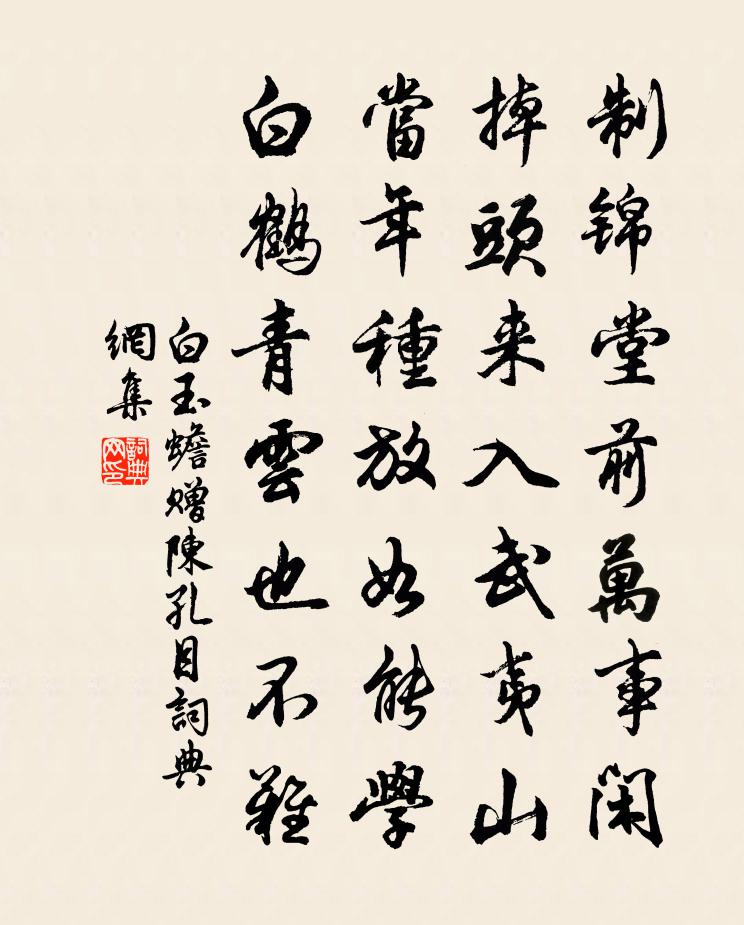 制錦堂前萬事閑
掉頭来入武夷山
當年種放如能學
白鶴青雲也不難
白玉蟾赠陳孔目詞典
網集
詞典
网印